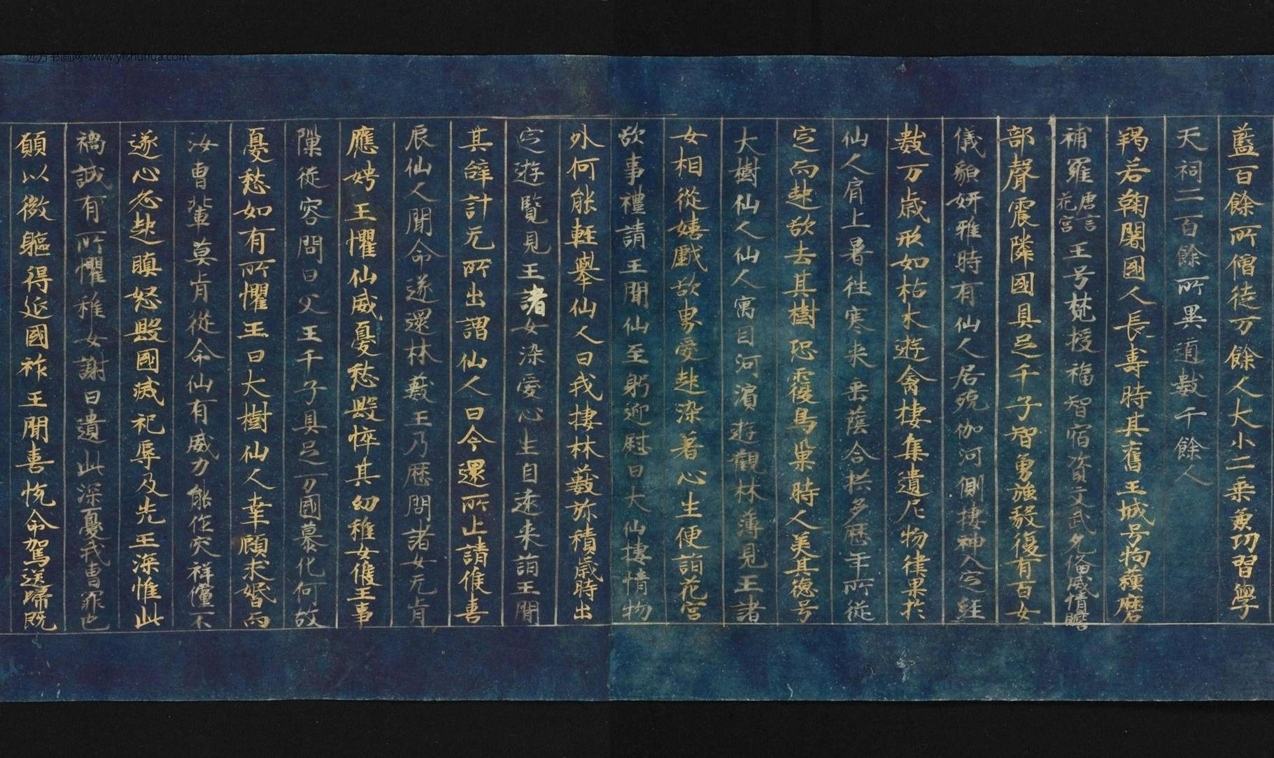 藍百餘所僧徒万餘人大小二乗兼功習學
天祠二百餘所異道數千餘人
羯若鞠闍國人長壽時其舊王城号拘蘓磨
補羅唐言花宮王号梵授福智宿資文武允備威懾贍
部聲震隣國具足千子智勇強毅復有百女
儀貌妍雅時有仙人居殑伽河側棲神入定經
數万歳形如枯木遊禽棲集遺尼物律果於
仙人肩上暑往寒来垂蔭合拱多歴年所従
定而起欲去其樹恐覆鳥巢時人美其德号
大樹仙人仙人寓目河濱遊觀林薄見王諸
女相從嬉戲欲界愛起染著心生便詣花宮
欲事禮請王聞仙至躬迎慰曰大仙棲情物
外何能輕舉仙人曰我棲林藪弥積歳時出
定遊覽見王諸女染愛心生自遠来請王聞
其辞計无所出謂仙人曰今還所止請俟善
辰仙人聞命遂還林藪王乃歴問諸女无肯
應娉王懼仙威憂愁毀悴其幼稚女候王事
隟從容問曰父王千子具足万國慕化何故
憂愁如有所懼王曰大樹仙人幸顧求婚而
汝曹輩莫肯從命仙有威力能作灾祥儻不
遂心必起瞋怒毀國滅祀辱及先王深惟此
禍誠有所懼稚女謝曰遺此深憂我曹罪也
願以微軀得延國祚王聞喜悦命駕送歸既